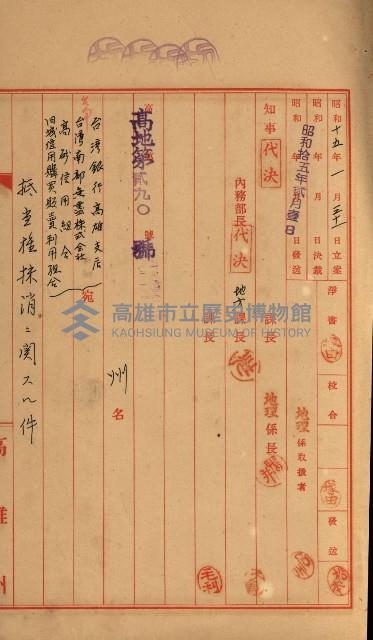 昭和十五年一月三十一日立案 淨書 校合 發送
昭和 年 月 日決裁
昭和 年 月 日發送
昭和拾五年貳月壹日
地理係取扱者
知事 代決
地理係長
內務部長 代決
地方課長
課長
高地第貳九〇號
州名
台湾銀行高雄支店
台湾南部無盡株式会社
高砂信用組合
旧城信用購買販賣利用組合
宛
抵当権抹消ニ関スル件
高雄州
高雄市立歷史博物館
KAOHSIUNG MUSEUM OF HISTORY
毛利